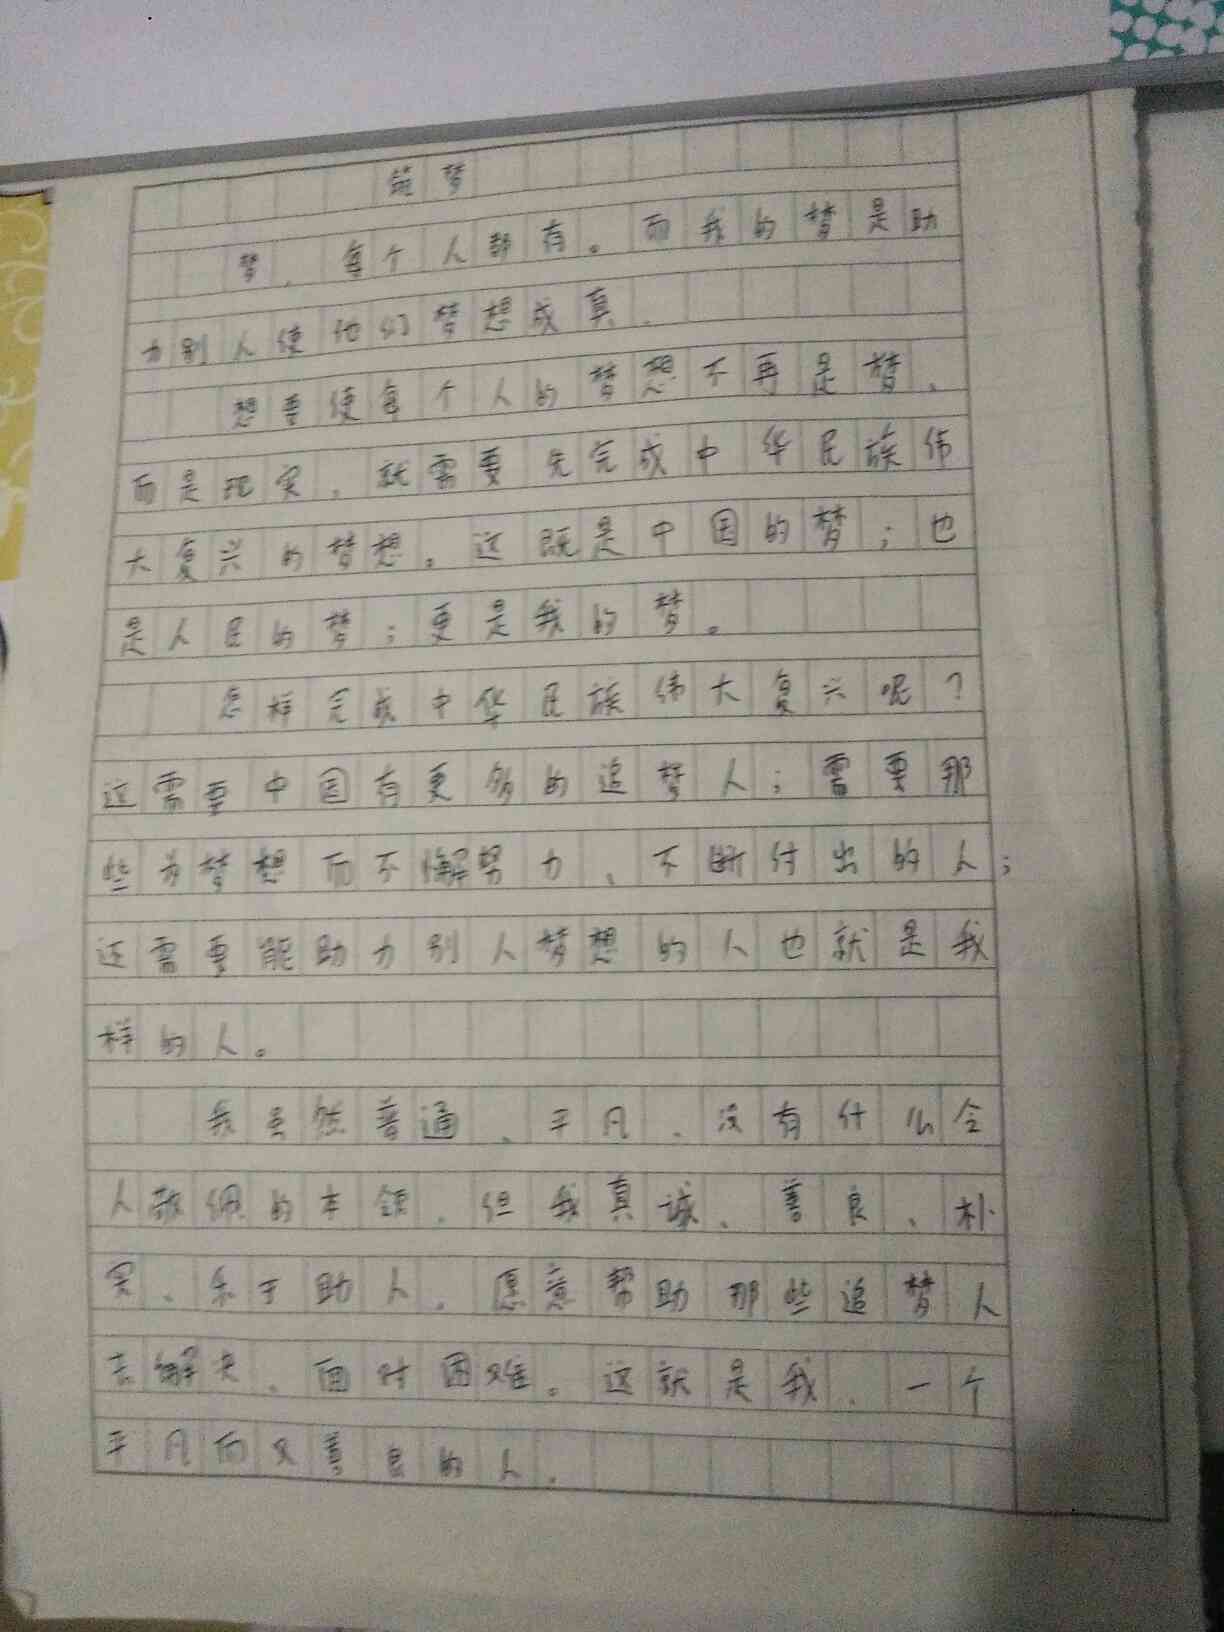 筑梦
梦,每个人都有。而我的梦是助
力别人使他们梦想成真.
想要使每个人的梦想不再是梦,
而是现实,就需要先完成中华民族伟
大复兴的梦想。这既是中国的梦;也
是人民的梦;更是我的梦。
怎样完成中华民族伟大复兴呢?
这需要中国有更多的追梦人;需要那
些为梦想而不懈努力、不断付出的人;
还需要能助力别人梦想的人也就是我
样的人。
我虽然普通、平凡,没有什么令
人敬佩的本领,但我真诚、善良、朴
实、乐于助人,愿意帮助那些追梦人
去解决、面对困难。这就是我,一个
平凡而又善良的人.